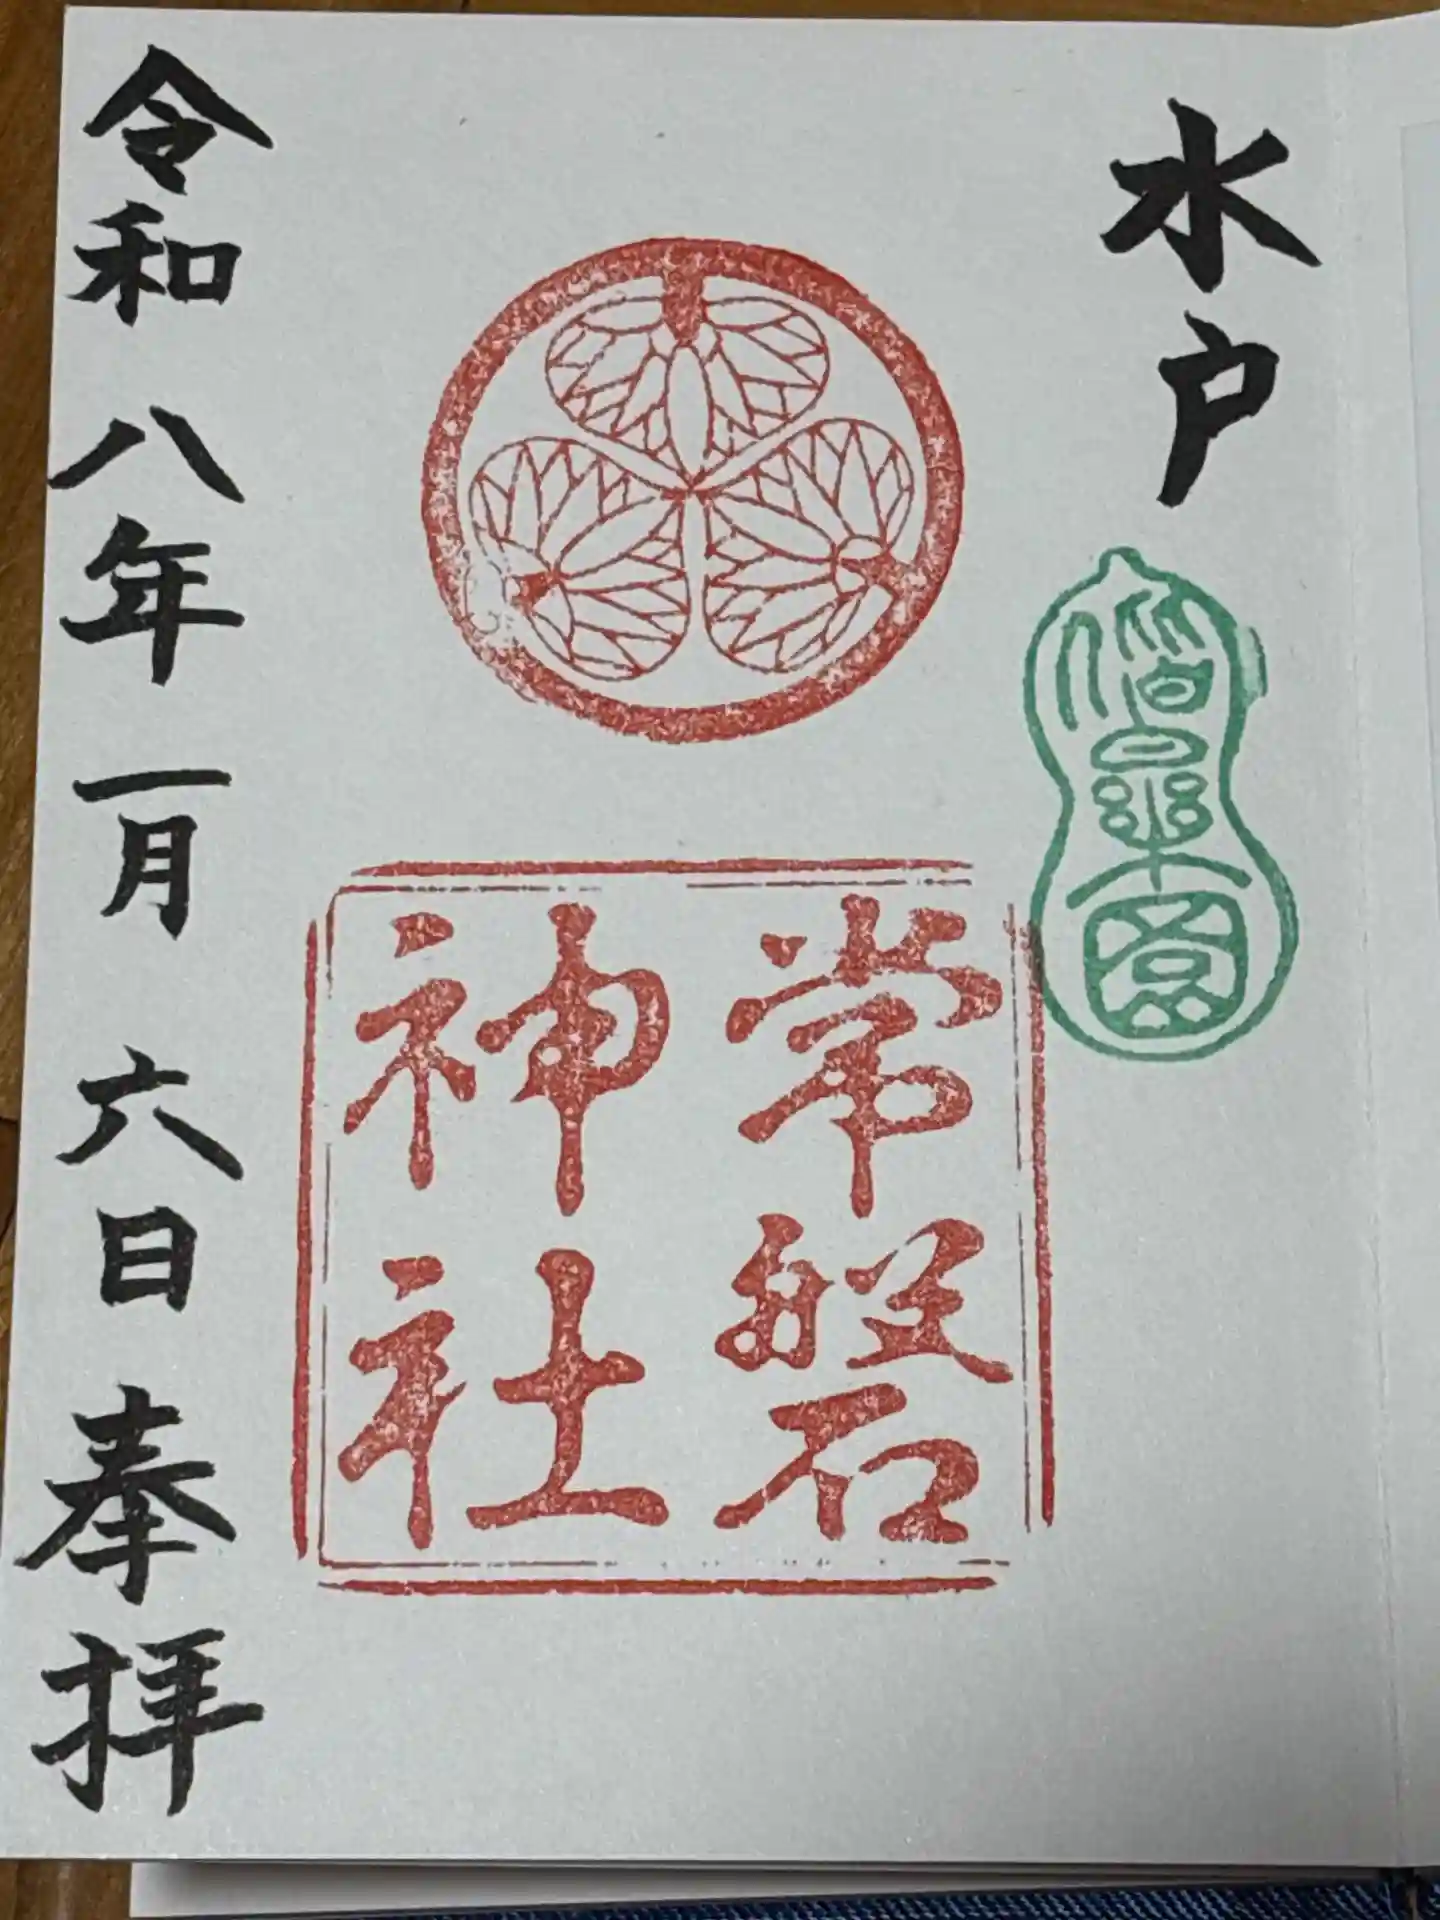 水戸
偕楽園
常磐
神社
令和八年一月六日奉拝